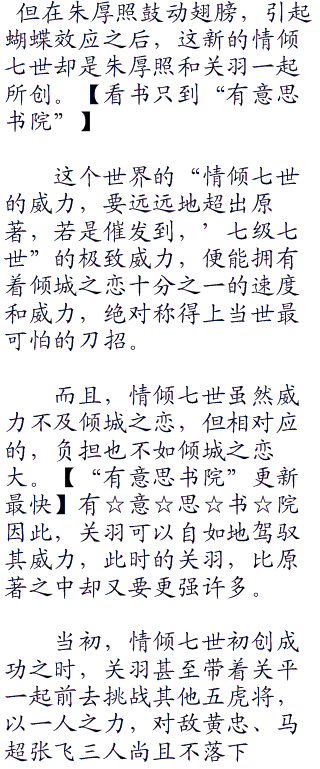 但在朱厚照鼓动翅膀，引起
蝴蝶效应之后，这新的情倾
七世却是朱厚照和关羽一起
所创。【看书只到“有意思
书院”】
这个世界的“情倾七世
的威力，要远远地超出原
著，若是催发到，’七级七
世”的极致威力，便能拥有
着倾城之恋十分之一的速度
和威力，绝对称得上当世最
可怕的刀招。
而且，情倾七世虽然威
力不及倾城之恋，但相对应
的，负担也不如倾城之恋
大。【“有意思书院”更新
最快】有☆意☆思☆书☆院
因此，关羽可以自如地驾驭
其威力，此时的关羽，比原
著之中却又要更强许多。
当初，情倾七世初创成
功之时，关羽甚至带着关平
一起前去挑战其他五虎将，
以一人之力，对敌黄忠、马
超张飞三人尚且不落下